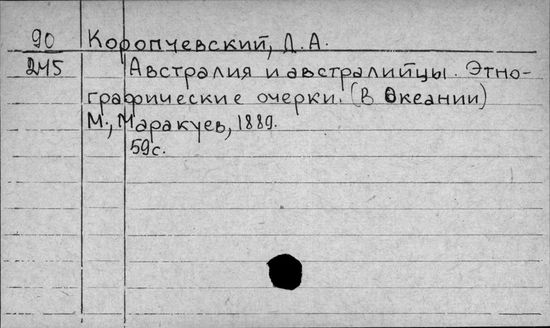 90 Коропчевский, Д.А.
245 Австралия и австралийцы. Этно-
графические очерки. (В Океании)
М., Маракуев, 1889.
59с.